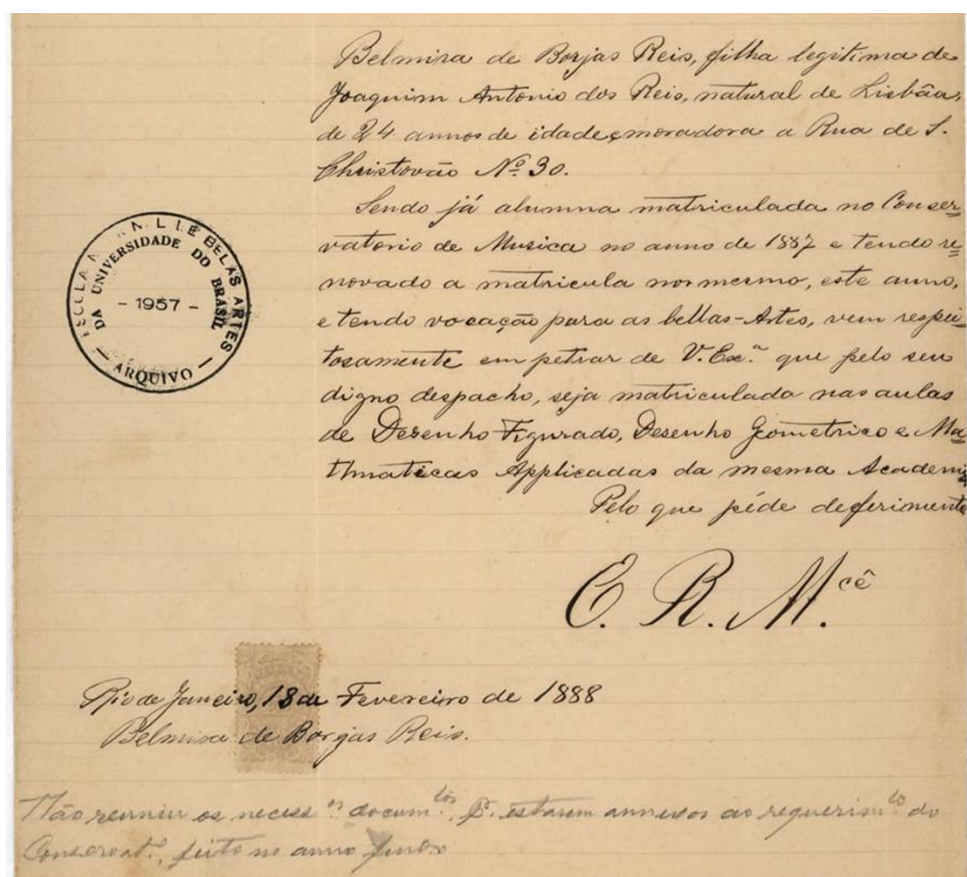 Belmira de Borjas Reis, filha legitima de
Joaquim Antonio dos Reis, natural de Lisbôa,
de 24 annos de idade, moradora a Rua de S.
Christovão Nº 30.
Sendo já alumna matriculada no Conser=
vatorio de Musica no anno de 1887 e tendo re=
novado a matricula no mesmo, este anno,
e tendo vocação para as bellas-Artes, vem respei=
tosamente em petrar de V. Exª. que pelo seu
digno despacho, seja matriculada nas aulas
de Desenho Figurado, Desenho Geometrico e Ma=
thmaticas Applicadas da mesma Academia
Pelo que péde deferimento
E. R. M.cê
ESCOLA BELAS ARTES
DA UNIVERSIDADE DO BRASIL
- 1957 -
ARQUIVO
Rio de Janeiro, 18 de Fevereiro de 1888
Belmira de Borjas Reis.
Não reuniu os necess.os docum.tos, P. estarem annexos ao requerim.to do
Conservat.º, feito no anno findo